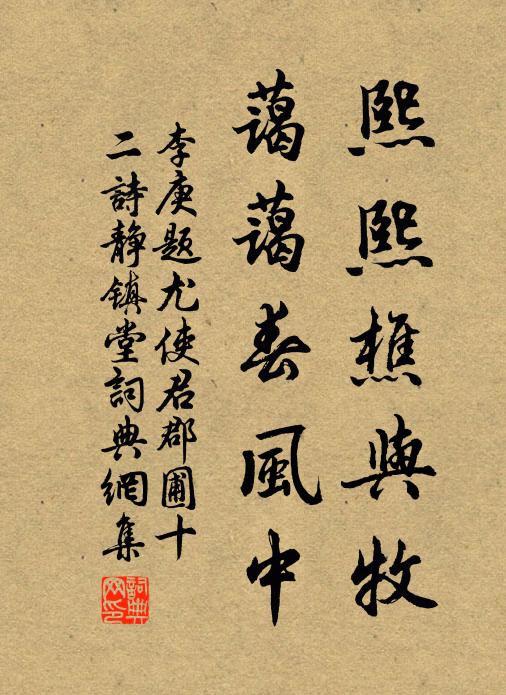 熙熙樵與牧
藹藹春風中
李庚題尤使君郡圃十
二詩靜鎮堂詞典網集
詞典
网印